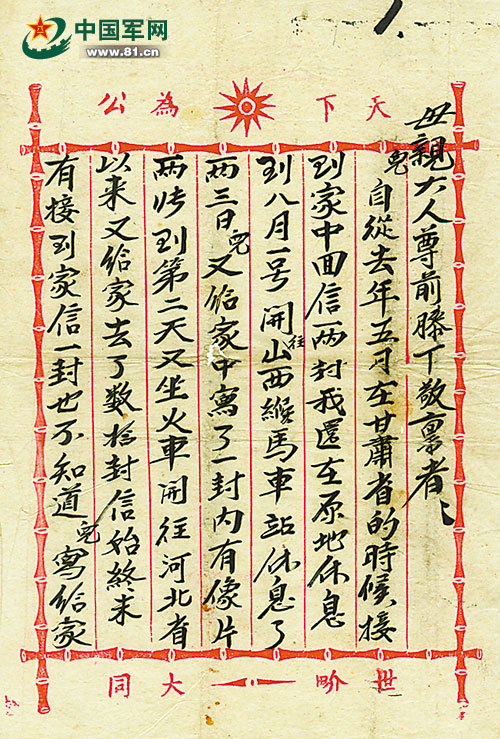 中国军网
www.81.cn
天下為公
母親大人尊前膝下敬禀者
兒自從去年五月在甘肅省的時候接
到家中回信一两封我還在原地休息
到八月一号開往山西緱馬車站休息了
两三日兒又給家中寫了一封内有像片
两张到第二天又坐火車開往河北省
以来又給家去了数拾封信始終未
有接到家信一封也不知道兒寫給家
世畍大同